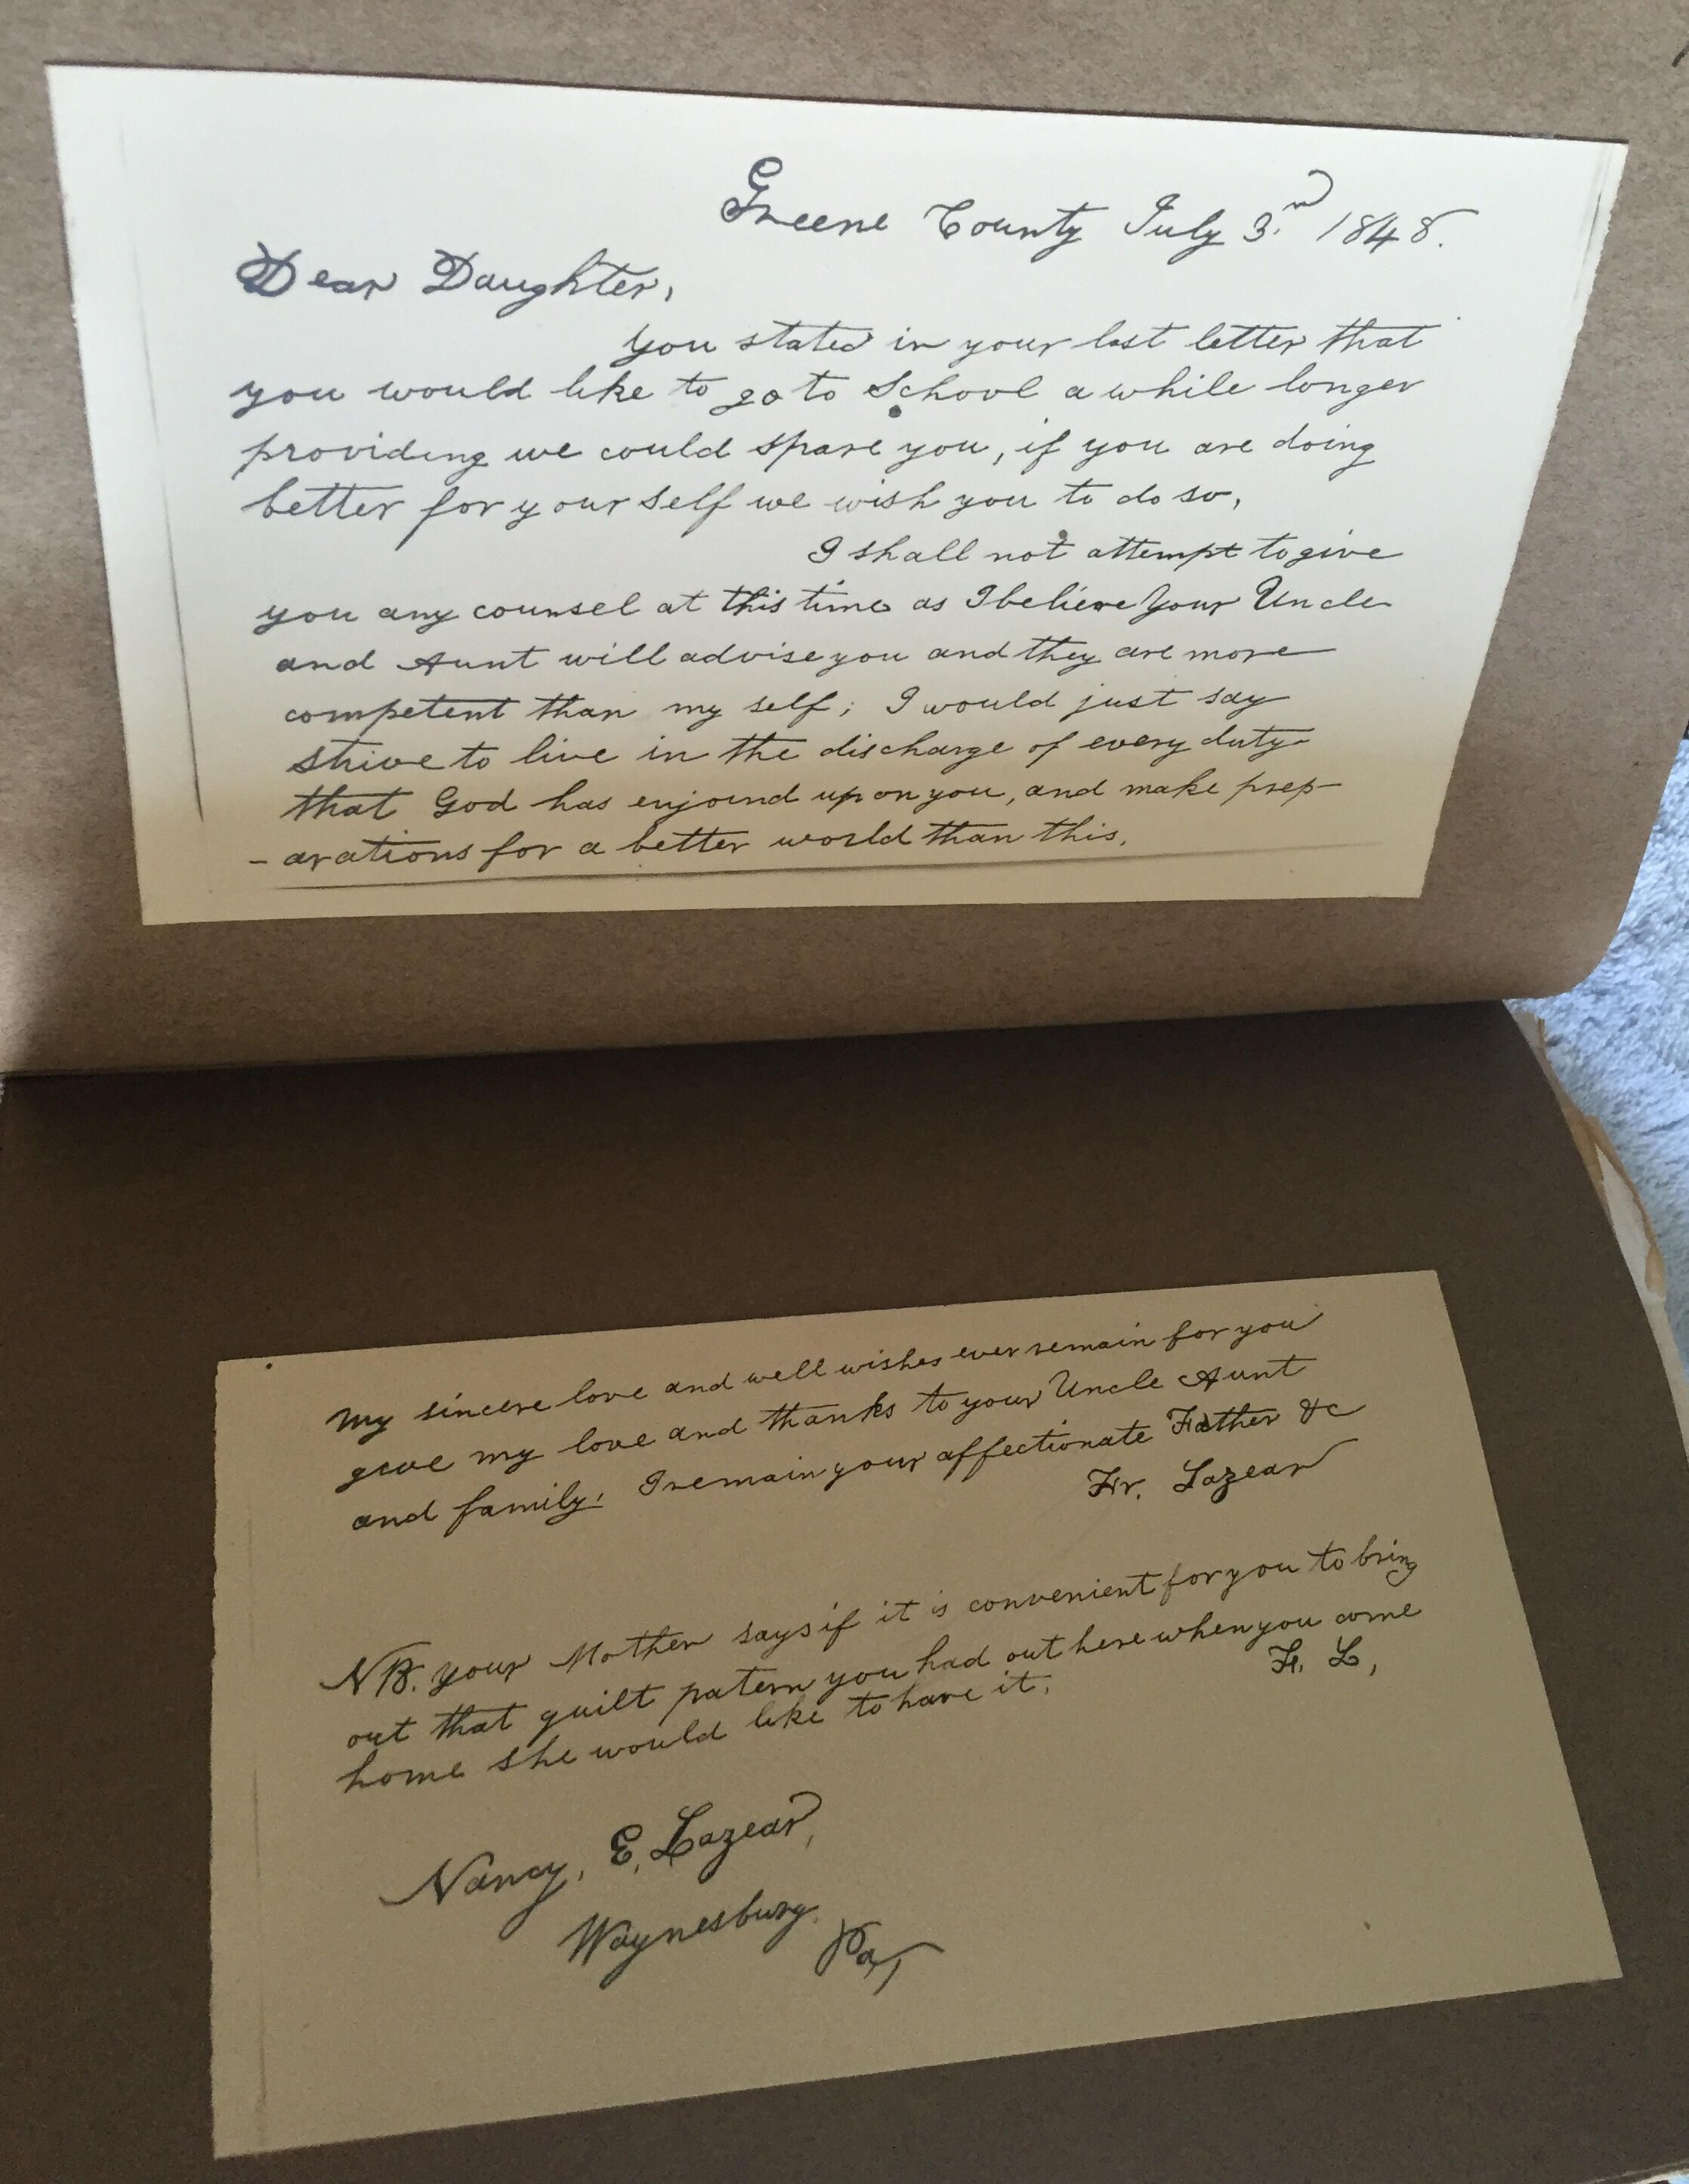 Greene County July 3.rd 1848.
Dear Daughter,
you stated in your last letter that
you would like to go to School a while longer
providing we could spare you, if you are doing
better for your self we wish you to do so,
I shall not attempt to give
you any counsel at this time as I believe your Uncle
and Aunt will advise you and they are more
competent than my self; I would just say
strive to live in the discharge of every duty
that God has enjoind up on you, and make prep-
-arations for a better world than this.
My sincere love and well wishes ever remain for you
give my love and thanks to your Uncle Aunt
and family. I remain your affectionate Father &c
Fr. Lazear
NB. your Mother says if it is convenient for you to bring
out that quilt patern you had out here when you come
home she would like to have it.
Fr. L,
Nancy, E, Lazear,
Waynesburg.
Pa,